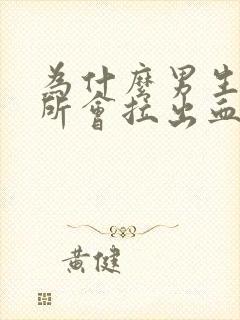 為什麼男生
所會拉出血
黃健